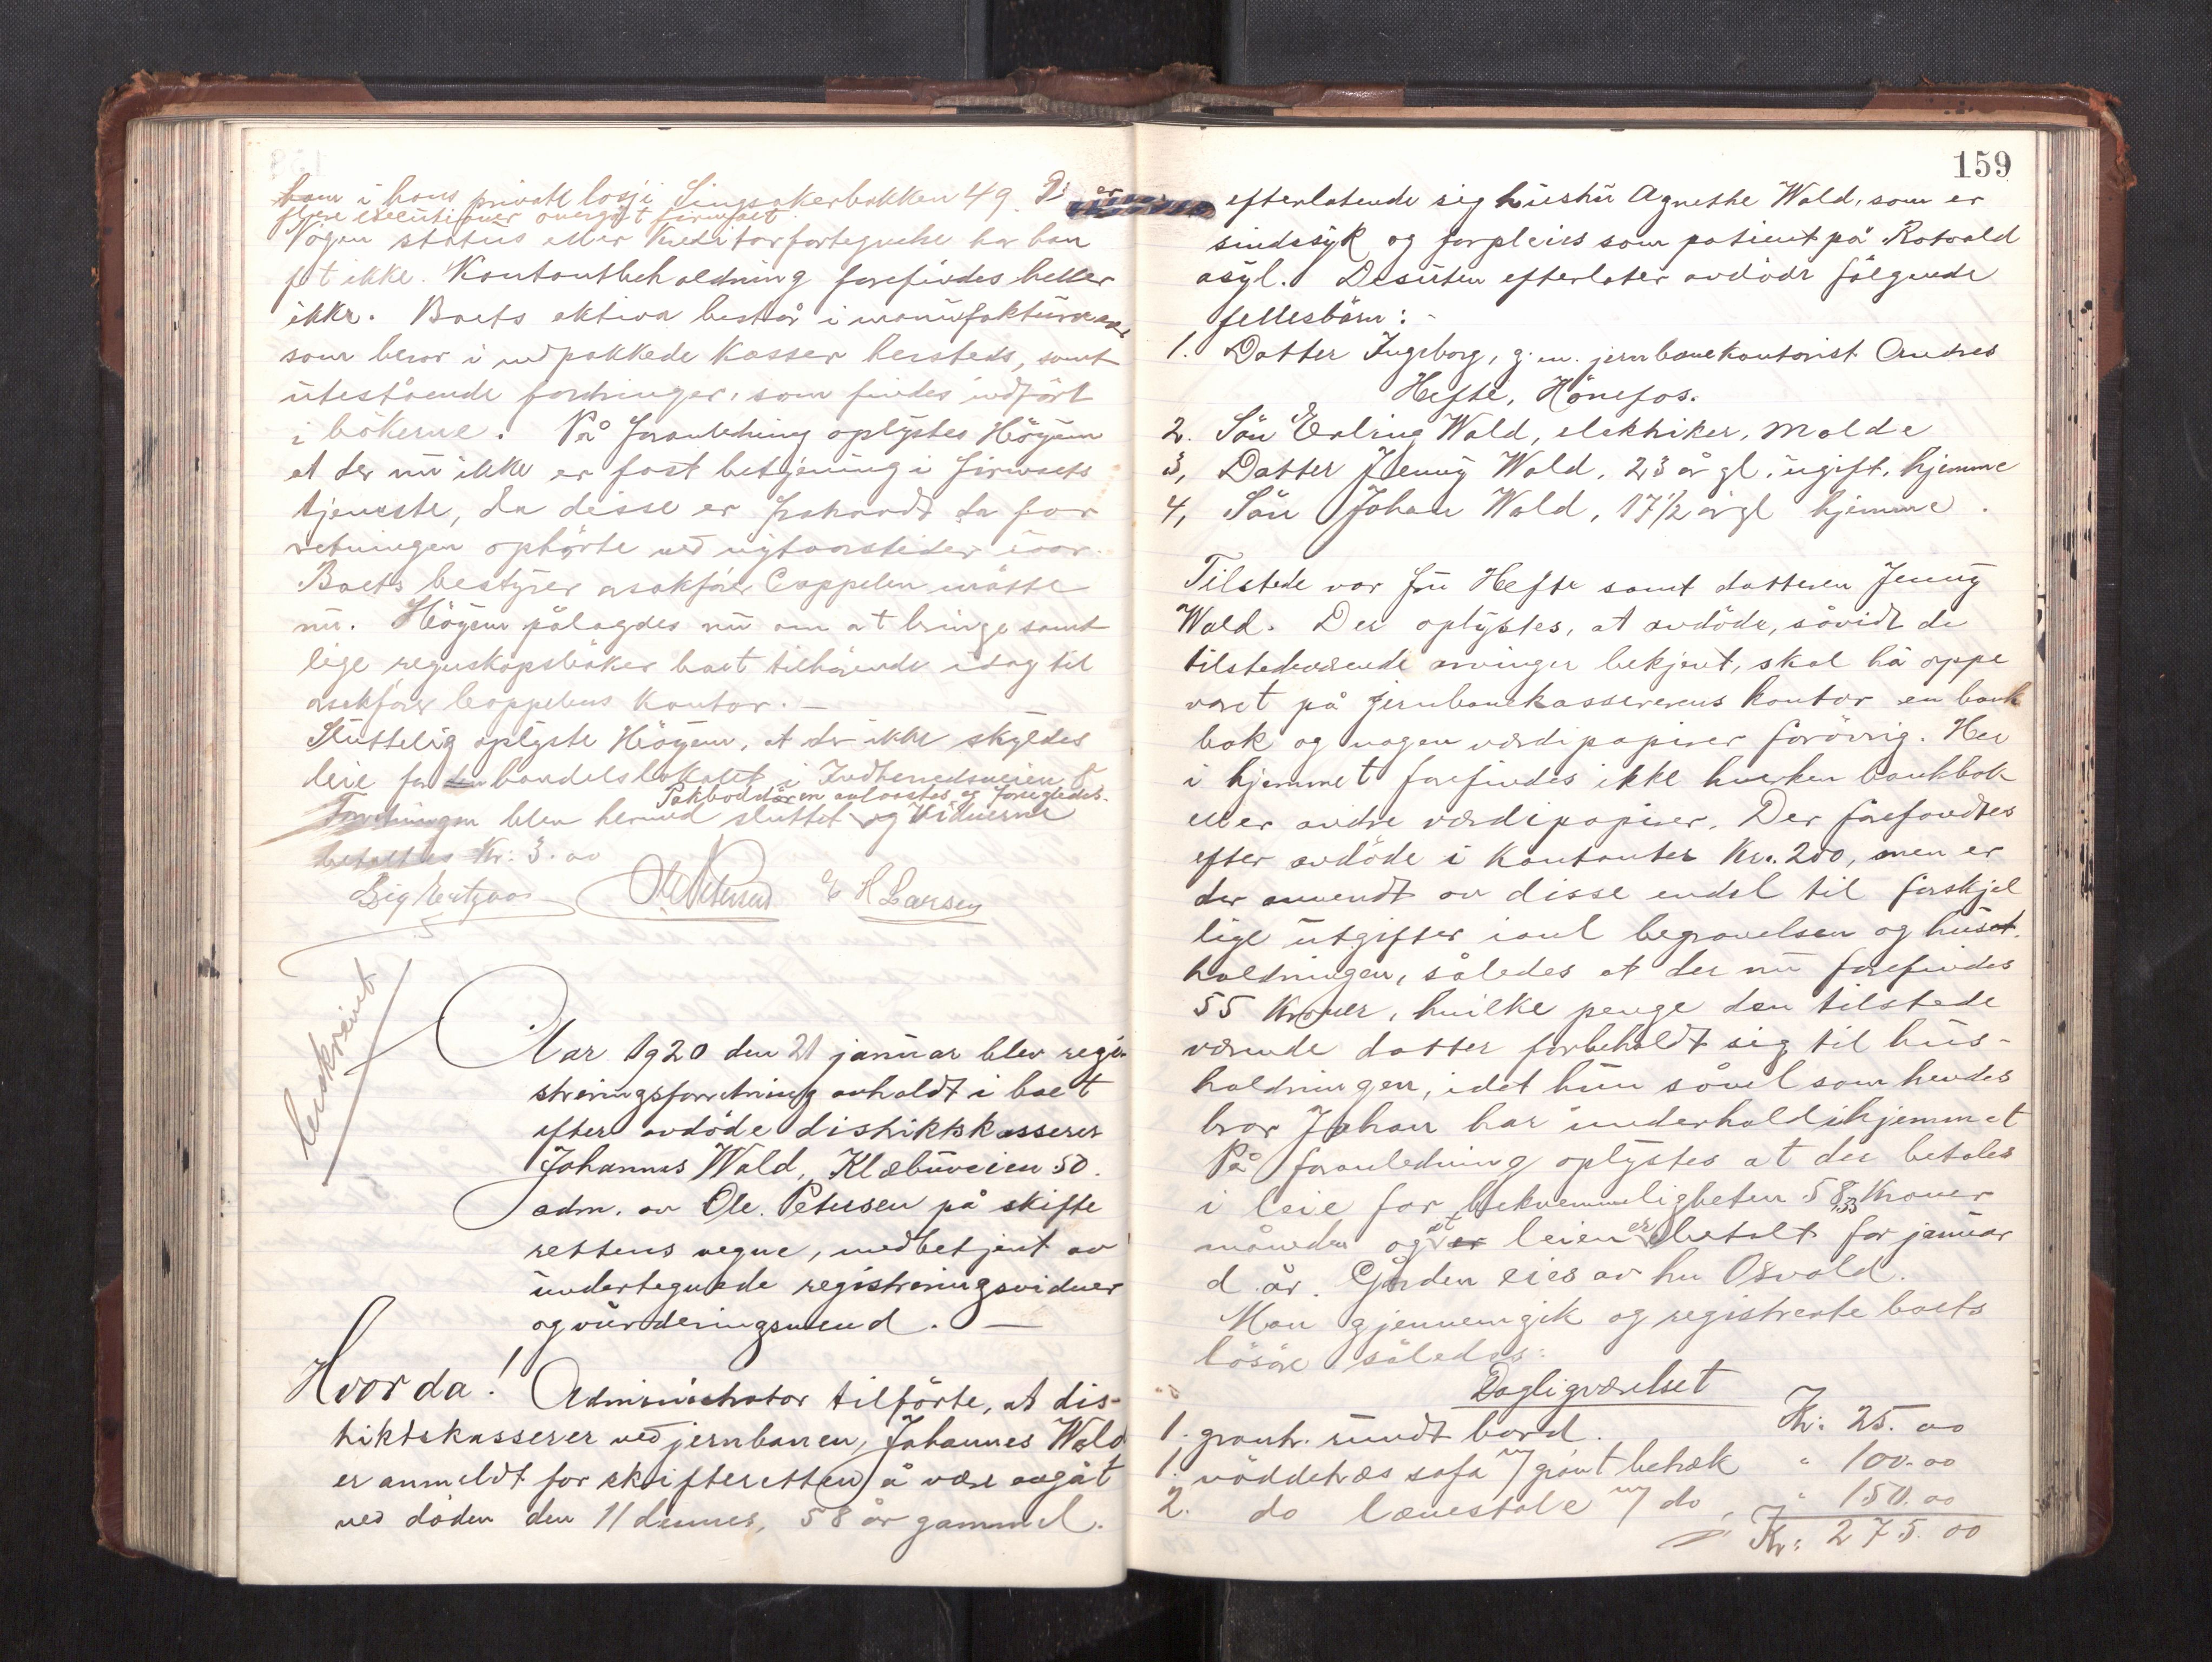 ham i hans privatl losji Singsakerbakken 49. Der
flere executioner overgåt firmaet.
Nogen status eller Kreditorfortegnelse har han
ikke. Kontantbeholdning forefindes heller
ikke. Boets aktiva består i manufakturvarer
som beror i nedpakkede kasser hersteds, samt
utestående fordringer, som findes indført
i bøkerne. På foranledning oplystes Høyem
at der nu ikke er fast betjening i firmaets
tjeneste, da disse er fratraadt da for
retningen ophørte ved nytaarstider iaar.
Boets bestyrer osakfører Coppelen møtte
nu. Høyem pålagdes nu om at bringe samt
lige regnskapsbøker boet tilhørende idag til
osakfører Coppelens kontor. —
Sluttelig oplyste Høyem, at der ikke skyldes
leie for handelslokalet i Indherredsveien 8
Pakboddøren avlaastes og forsegledes.
Forretningen blev hermed sluttet og Vidnerne
betaltes Kr: 3.00
E H Larsen
beskreivet
Aar 1920 den 21 januar blev regi-
streringsforretning avholdt i boet
efter avdöde distriktskasserer
Johannes Wald, Klæbuveien 50.
adm. av Ole. Petersen på skifte
rettens vegne, medbetjent av
undertegnede registreringsvidner
og vurderingsmend. —
Hvor da! Administrator tilförte, at dis-
triktskasserer ved jernbanen, Johannes Wald
er anmeldt for skifteretten å være avgåt
ved döden den 11 dennes, 58 år gammel.
159
efterlatende sig hustru Agnethe Wald, som er
sindssyk og forpleies som patient på Rotvold
asyl. Desuten efterlater avdöde fölgende
fellesbörn: -
1. Datter Ingeborg, g. m. jernbanekontorist Andres
Hefte, Hönefos.
2. Sön Erling Wald, elektriker, Molde
3, Datter Jenny Wald, 23 år gl. ugift, hjemme
4, Sön Johan Wald, 17½ år gl hjemme.
Tilstede var fru Hefte samt datteren Jenny
Wald. Der oplystes, at avdöde, såvidt de
tilstedeværende arvinger bekjent, skal ha oppe
varet på jernbanekassererens kontor en bank
bok og nogen værdipapirer forövrig. Her
i hjemmet forefindes ikke hverken bankbok
eller andre værdipapirer. Der forefandtes
efter avdöde i kontanter Kr. 200, men er
der anvendt av disse endel til forskjel
lige utgifter ianl begravelsen og huset.
holdningen, således at der nu forefindes
55 Kroner, hvilke penge den tilstede
værende datter forbeholdt sig til hus-
holdningen, idet hun såvel som hendes
bror Johan har underhold i hjemmet
På foranledning oplystes at der betales
i leie for bekvemmeligheten 58,33 Kroner
måneden og at leien er betalt for januar
d. år. Gården eies av hr Osvald.
Man gjennemgik og registrerte boets
lösöre således:
Dagligværelset
1. granh. rundt bord. Kr: 25.00
1. nöddetræs sofa m/ grönt betræk " 100.00
2. do lænestole m/ do " 150.00
Kr: 275.00